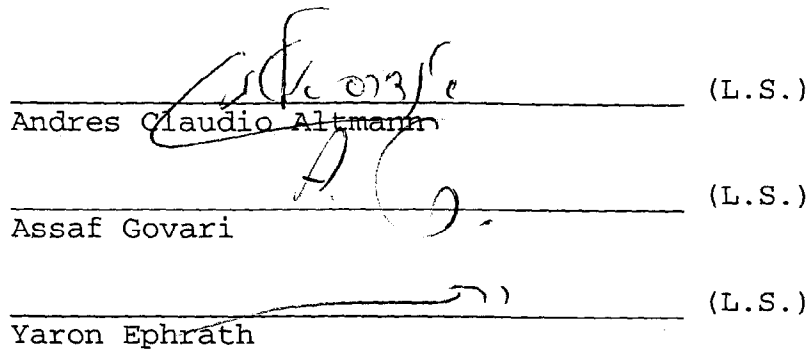 (L.S.)
Andres Claudio Altmann
(L.S.)
Assaf Govari
(L.S.)
Yaron Ephrath